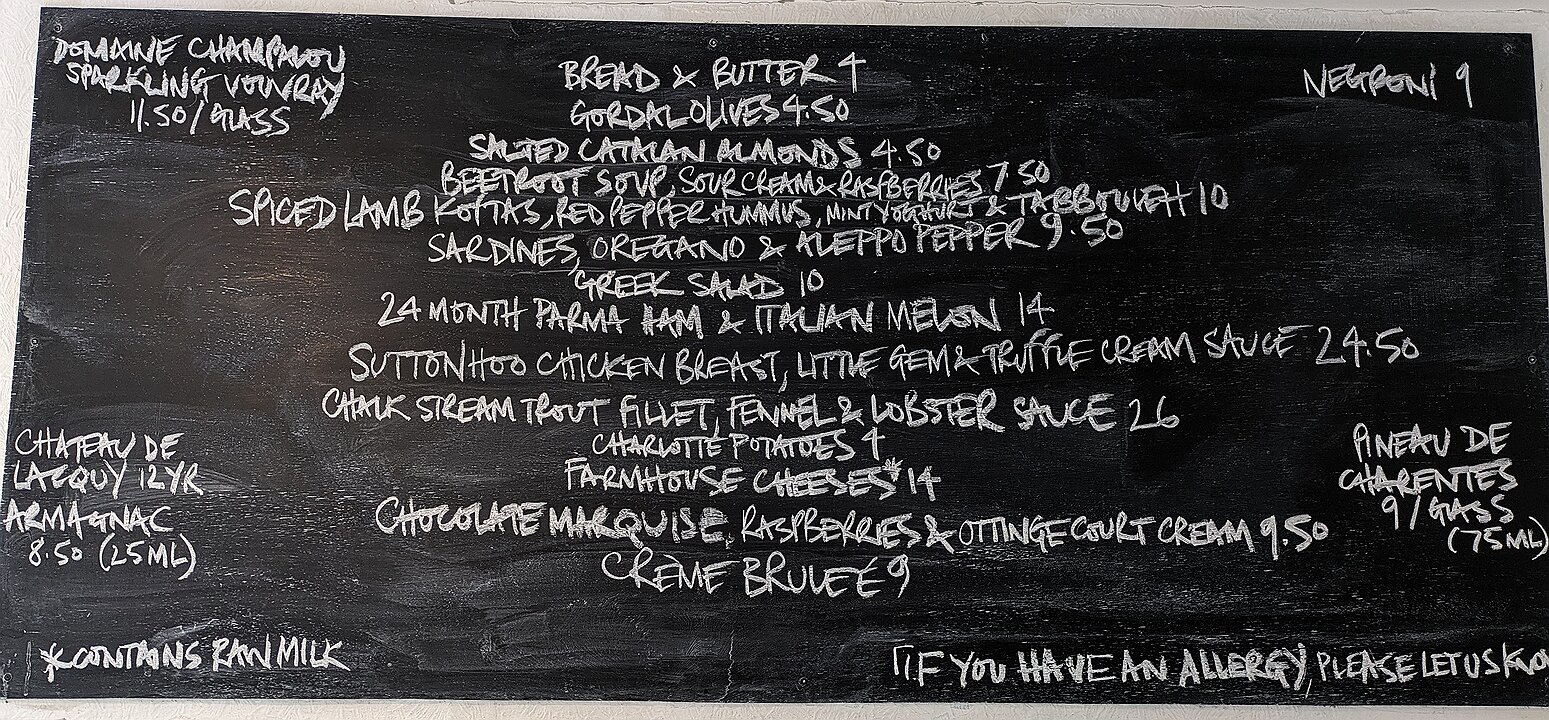 DOMAINE CHAMPALOU
SPARKLING VOUVRAY
11.50/GLASS
NEGRONI 9
BREAD & BUTTER 4
GORDAL OLIVES 4.50
SALTED CATALAN ALMONDS 4.50
BEETROOT SOUP, SOUR CREAM & RASPBERRIES 7.50
SPICED LAMB KOFTAS, RED PEPPER HUMMUS, MINT YOGHURT & TABBOULEH 10
SARDINES, OREGANO & ALEPPO PEPPER 9.50
GREEK SALAD 10
24 MONTH PARMA HAM & ITALIAN MELON 14
SUTTON HOO CHICKEN BREAST, LITTLE GEM & TRUFFLE CREAM SAUCE 24.50
CHALK STREAM TROUT FILLET, FENNEL & LOBSTER SAUCE 26
CHARLOTTE POTATOES 4
FARMHOUSE CHEESES* 14
CHOCOLATE MARQUISE, RASPBERRIES & OTTINGE COURT CREAM 9.50
CRÈME BRULEÉ 9
CHATEAU DE
LACQUY 12YR
ARMAGNAC
8.50 (25ML)
PINEAU DE
CHARENTES
9/GLASS
(75ML)
*CONTAINS RAW MILK
IF YOU HAVE AN ALLERGY, PLEASE LET US KNO